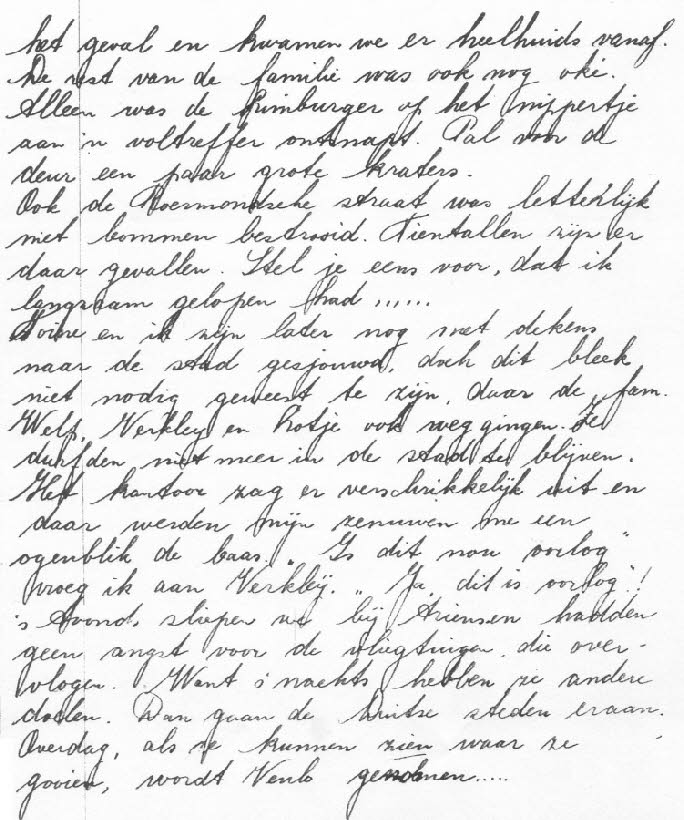 het geval en kwamen we er heelhuids vanaf.
De rest van de familie was ook nog oké.
Alleen was de Limburger of het nijpertje
aan 'n voltreffer ontsnapt. Pal voor de
deur een paar grote kraters.
Ook de Roermondsche straat was letterlijk
met bommen bestrooid. Tientallen zijn er
daar gevallen. Stel je eens voor, dat ik
langzaam gelopen had ......
en ik zijn later nog met dekens
naar de stad gesjouwd, doch dit bleek
niet nodig geweest te zijn, daar de fam.
Welp, Verkley en Rotje ook weg gingen. Ze
durfden niet meer in de stad te blijven.
Het kantoor zag er verschrikkelijk uit en
daar werden mijn zenuwen me een
ogenblik de baas. „Is dit nou oorlog"
vroeg ik aan Verkley. „Ja, dit is oorlog"!
's Avonds sliepen we bij Ariensen hadden
geen angst voor de vliegtuigen, die over-
vlogen. Want s' nachts hebben ze andere
doelen. Dan gaan de Duitse steden eraan.
Overdag, als ze kunnen zien waar ze
gooien, wordt Venlo genomen.....